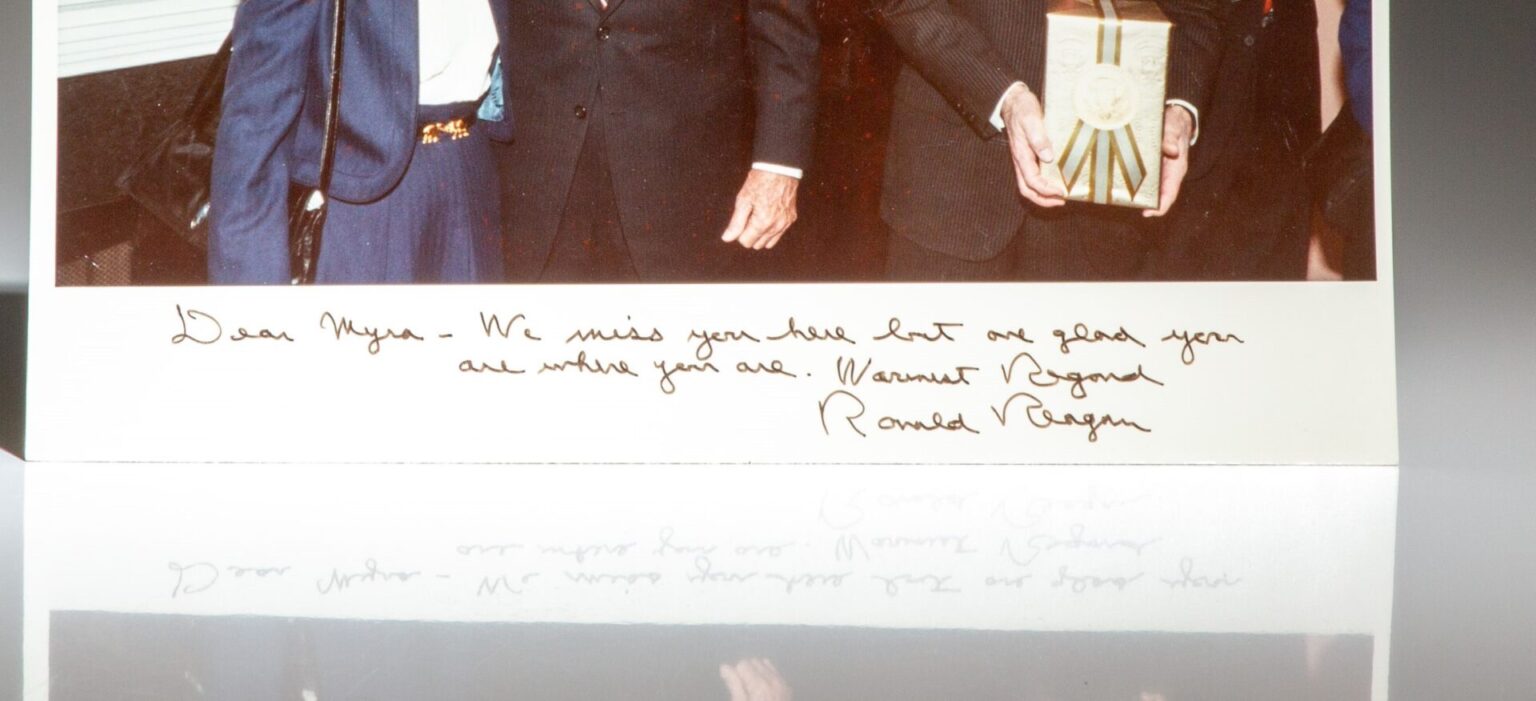 Dear Myra – We miss you here but are glad you
are where you are. Warmest Regard
Ronald Reagan